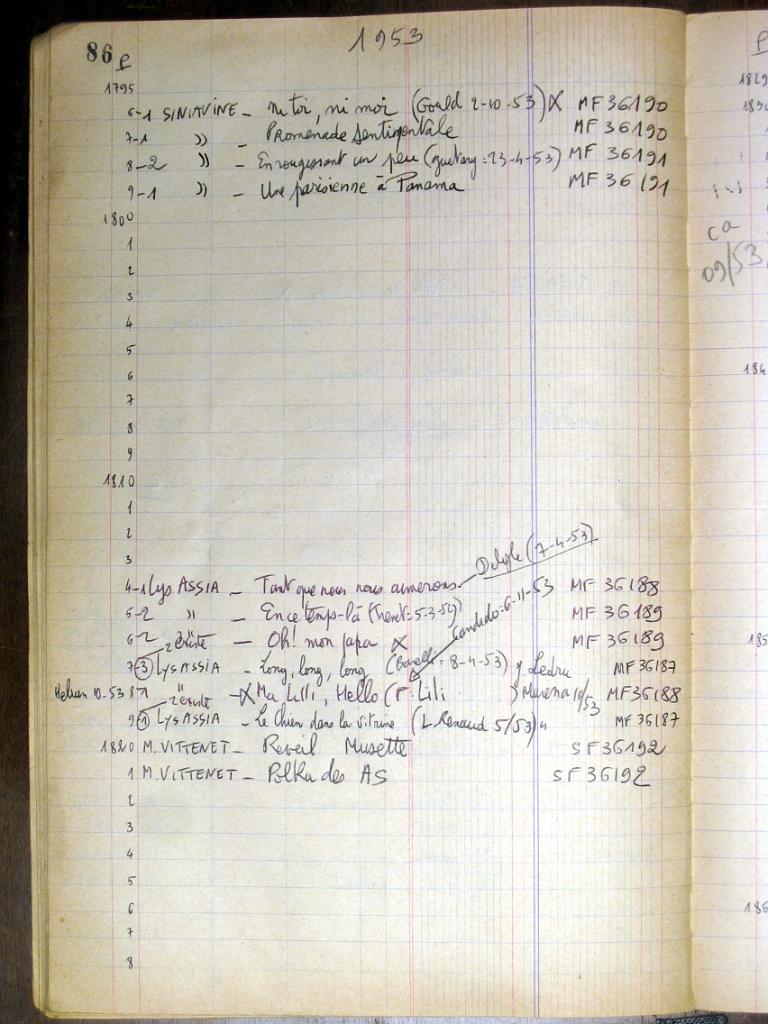 86 P
1953
1795
6-1 SINIAVINE - ni toi, ni moi (Gould 2-10-53) X MF 36190
7-1 " - Promenade Sentimentale MF 36190
8-2 " - En rougissant un peu (Guétary: 23-4-53) MF 36191
9-1 " - Une parisienne à Panama MF 36191
1800
1
2
3
4
5
6
7
8
9
1810
1
2
3
Delyle (7-4-53)
4-1 Lys ASSIA - Tant que nous nous aimerons MF 36188
5-2 " - En ce temps-là (Trent: 5-3-52) MF 36189
Candido: 6-11-53
6-2 2 existe - Oh! mon papa X MF 36189
7 3 Lys ASSIA - Long, long, long (Borelli: 8-4-53) y Ledru MF 36187
Helian 10.53 8 1 " 2 existe - X Ma Lilli, Hello (r. Lili ) Murena 10/53 MF 36188
9 1 Lys ASSIA - Le Chien dans la vitrine (L. Renaud 5/53) " MF 36187
1820 M. VITTENET - Reveil Musette SF 36192
1 M. VITTENET - Polka des AS SF 36192
2
3
4
5
6
7
8
P
1829
183
ca
09/53
184
185
186